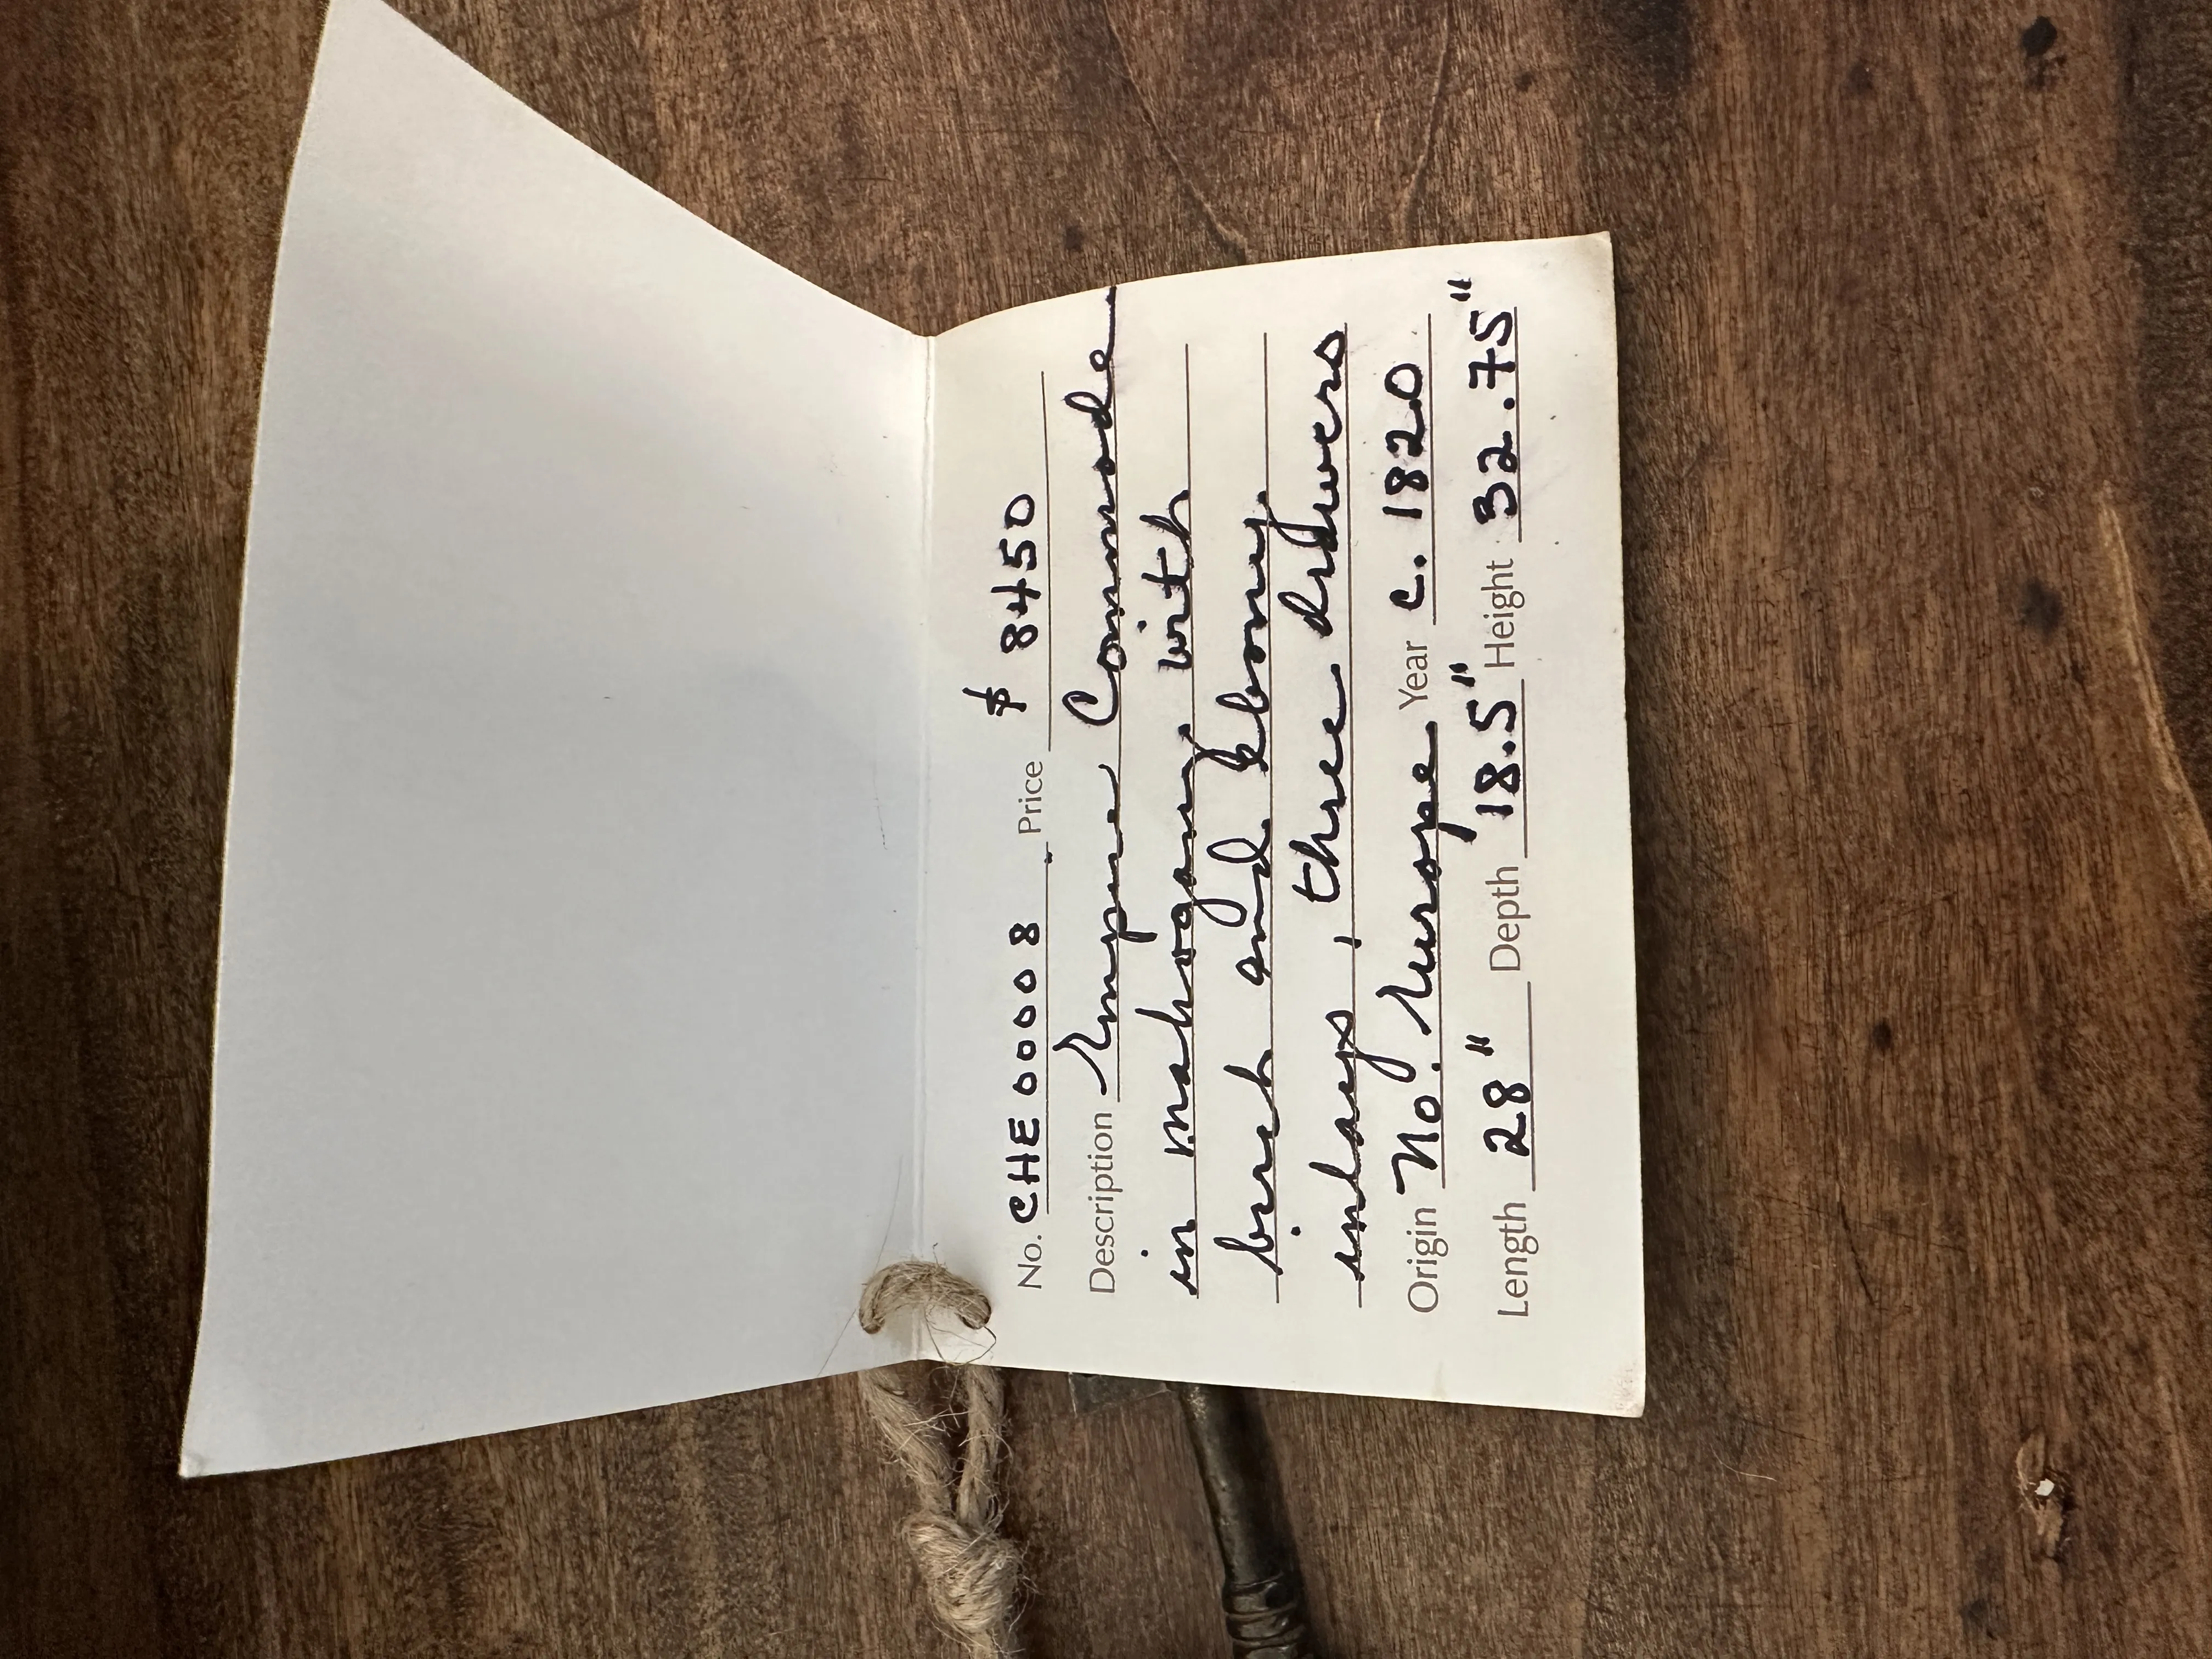 No. CHE00008 Price $ 8450
Description Empire Commode
in mahogany with
birch and ebony
inlays, three drawers
Origin No. Europe Year c. 1820
Length 28" Depth 18.5" Height 32.75"